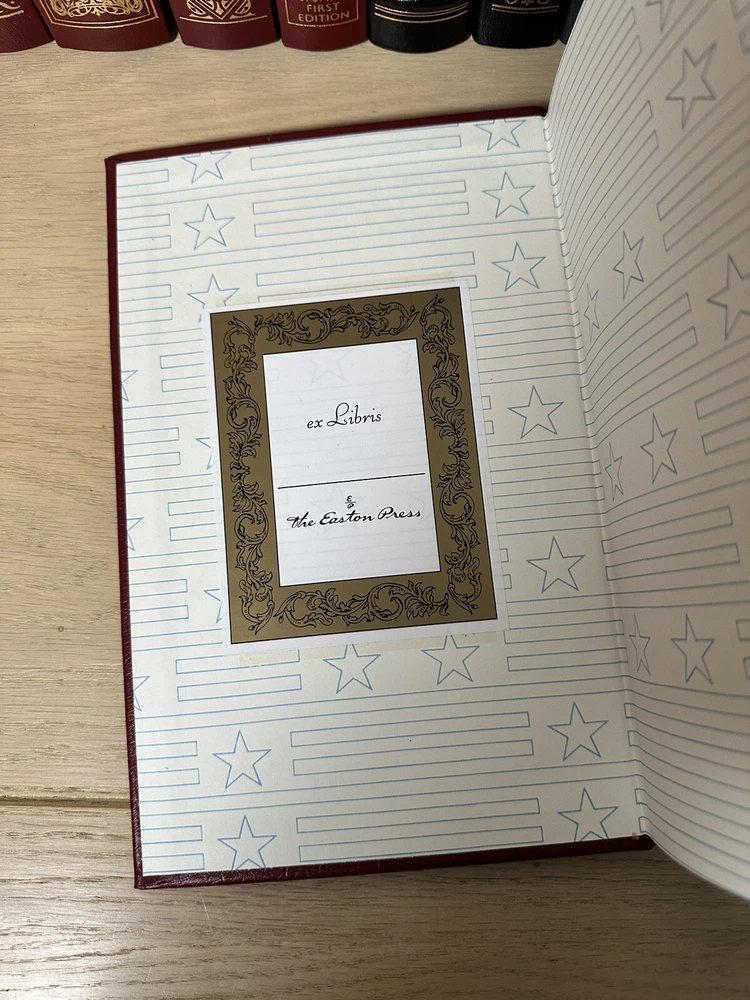 FIRST
EDITION
ex Libris
The Easton Press